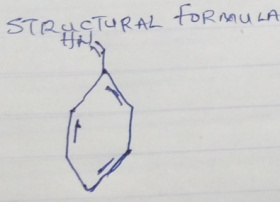 STRUCTURAL FORMULA
HN